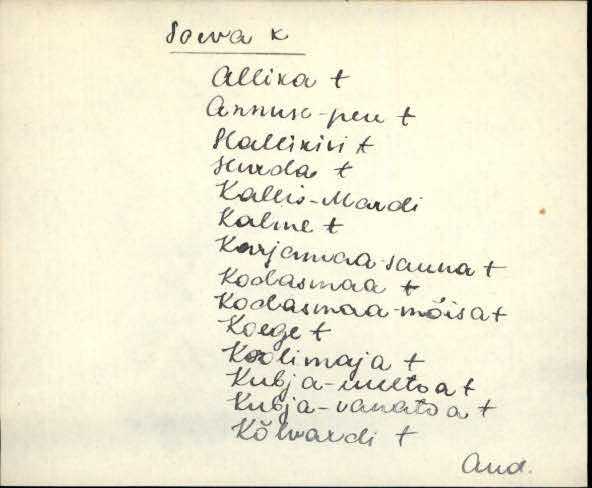 Soeva k
Allika t
Annuse-peu t
Hallikivi t
Hurda t
Kallis-Mardi
Kalme t
Karjamaa-sauna t
Kodasmaa t
Kodasmaa-mõisa t
Koege t
Koolimaja t
Kubja-uuetoa t
Kubja-vanatoa t
Kõlvardi t
And.